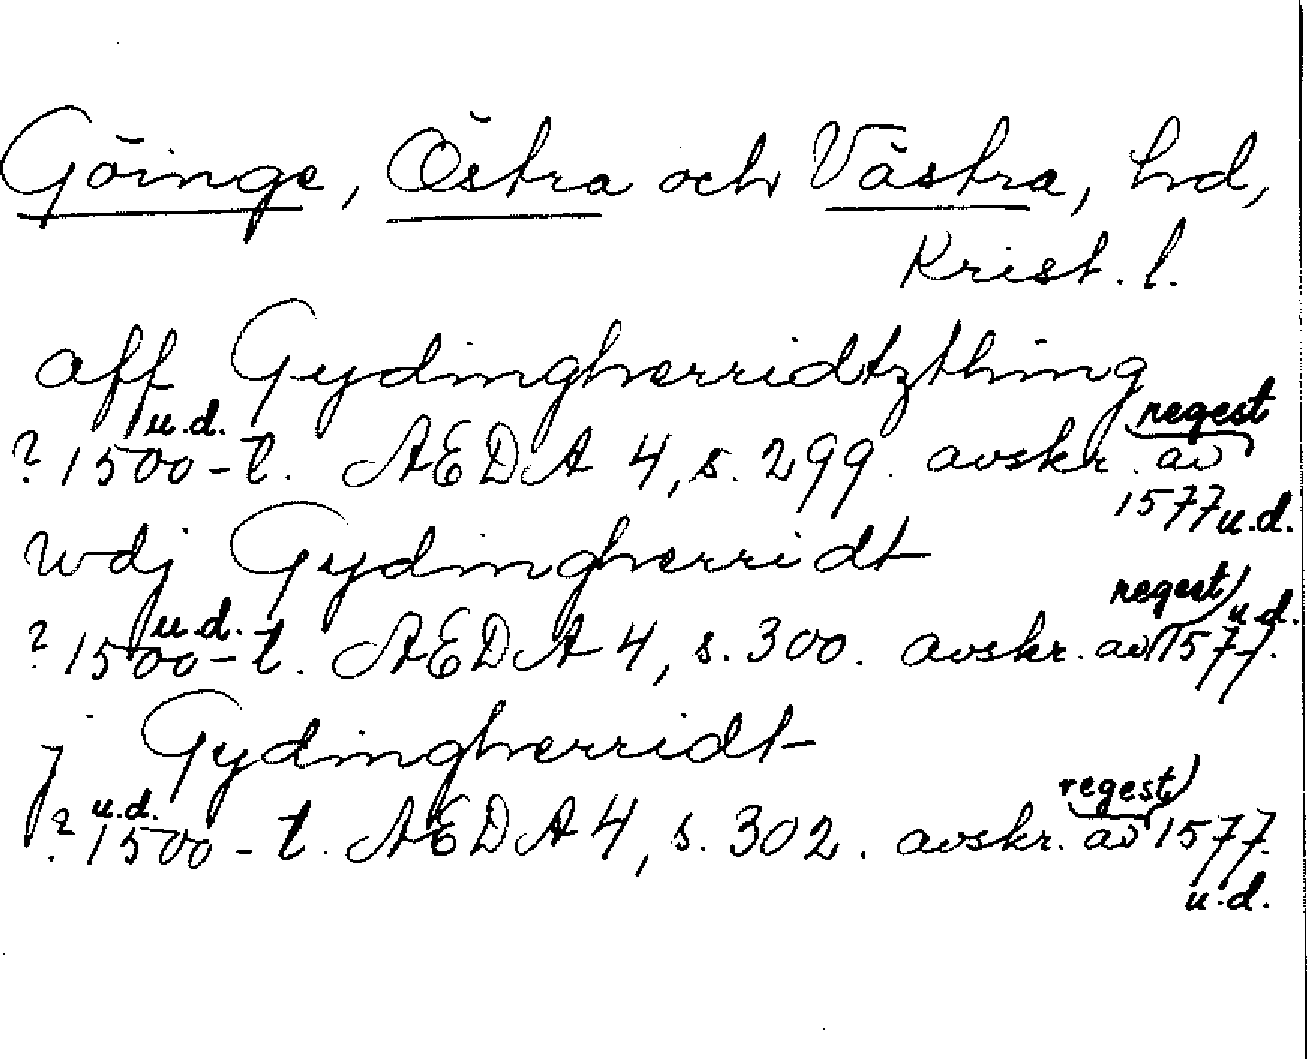 Göinge, Östra och Västra, hd,
Krist. l.
aff Gydingherridtzthing
? 1500-t. u.d. AEDA 4, s. 299. avskr. av regest
1577 u.d.
wdj Gydingherridt
? 1500-t. u.d. AEDA 4, s. 300. avskr. av regest 1577. u.d.
j Gydingherridt
? 1500-t. u.d. AEDA 4, s. 302. avskr. av regest 1577.
u.d.